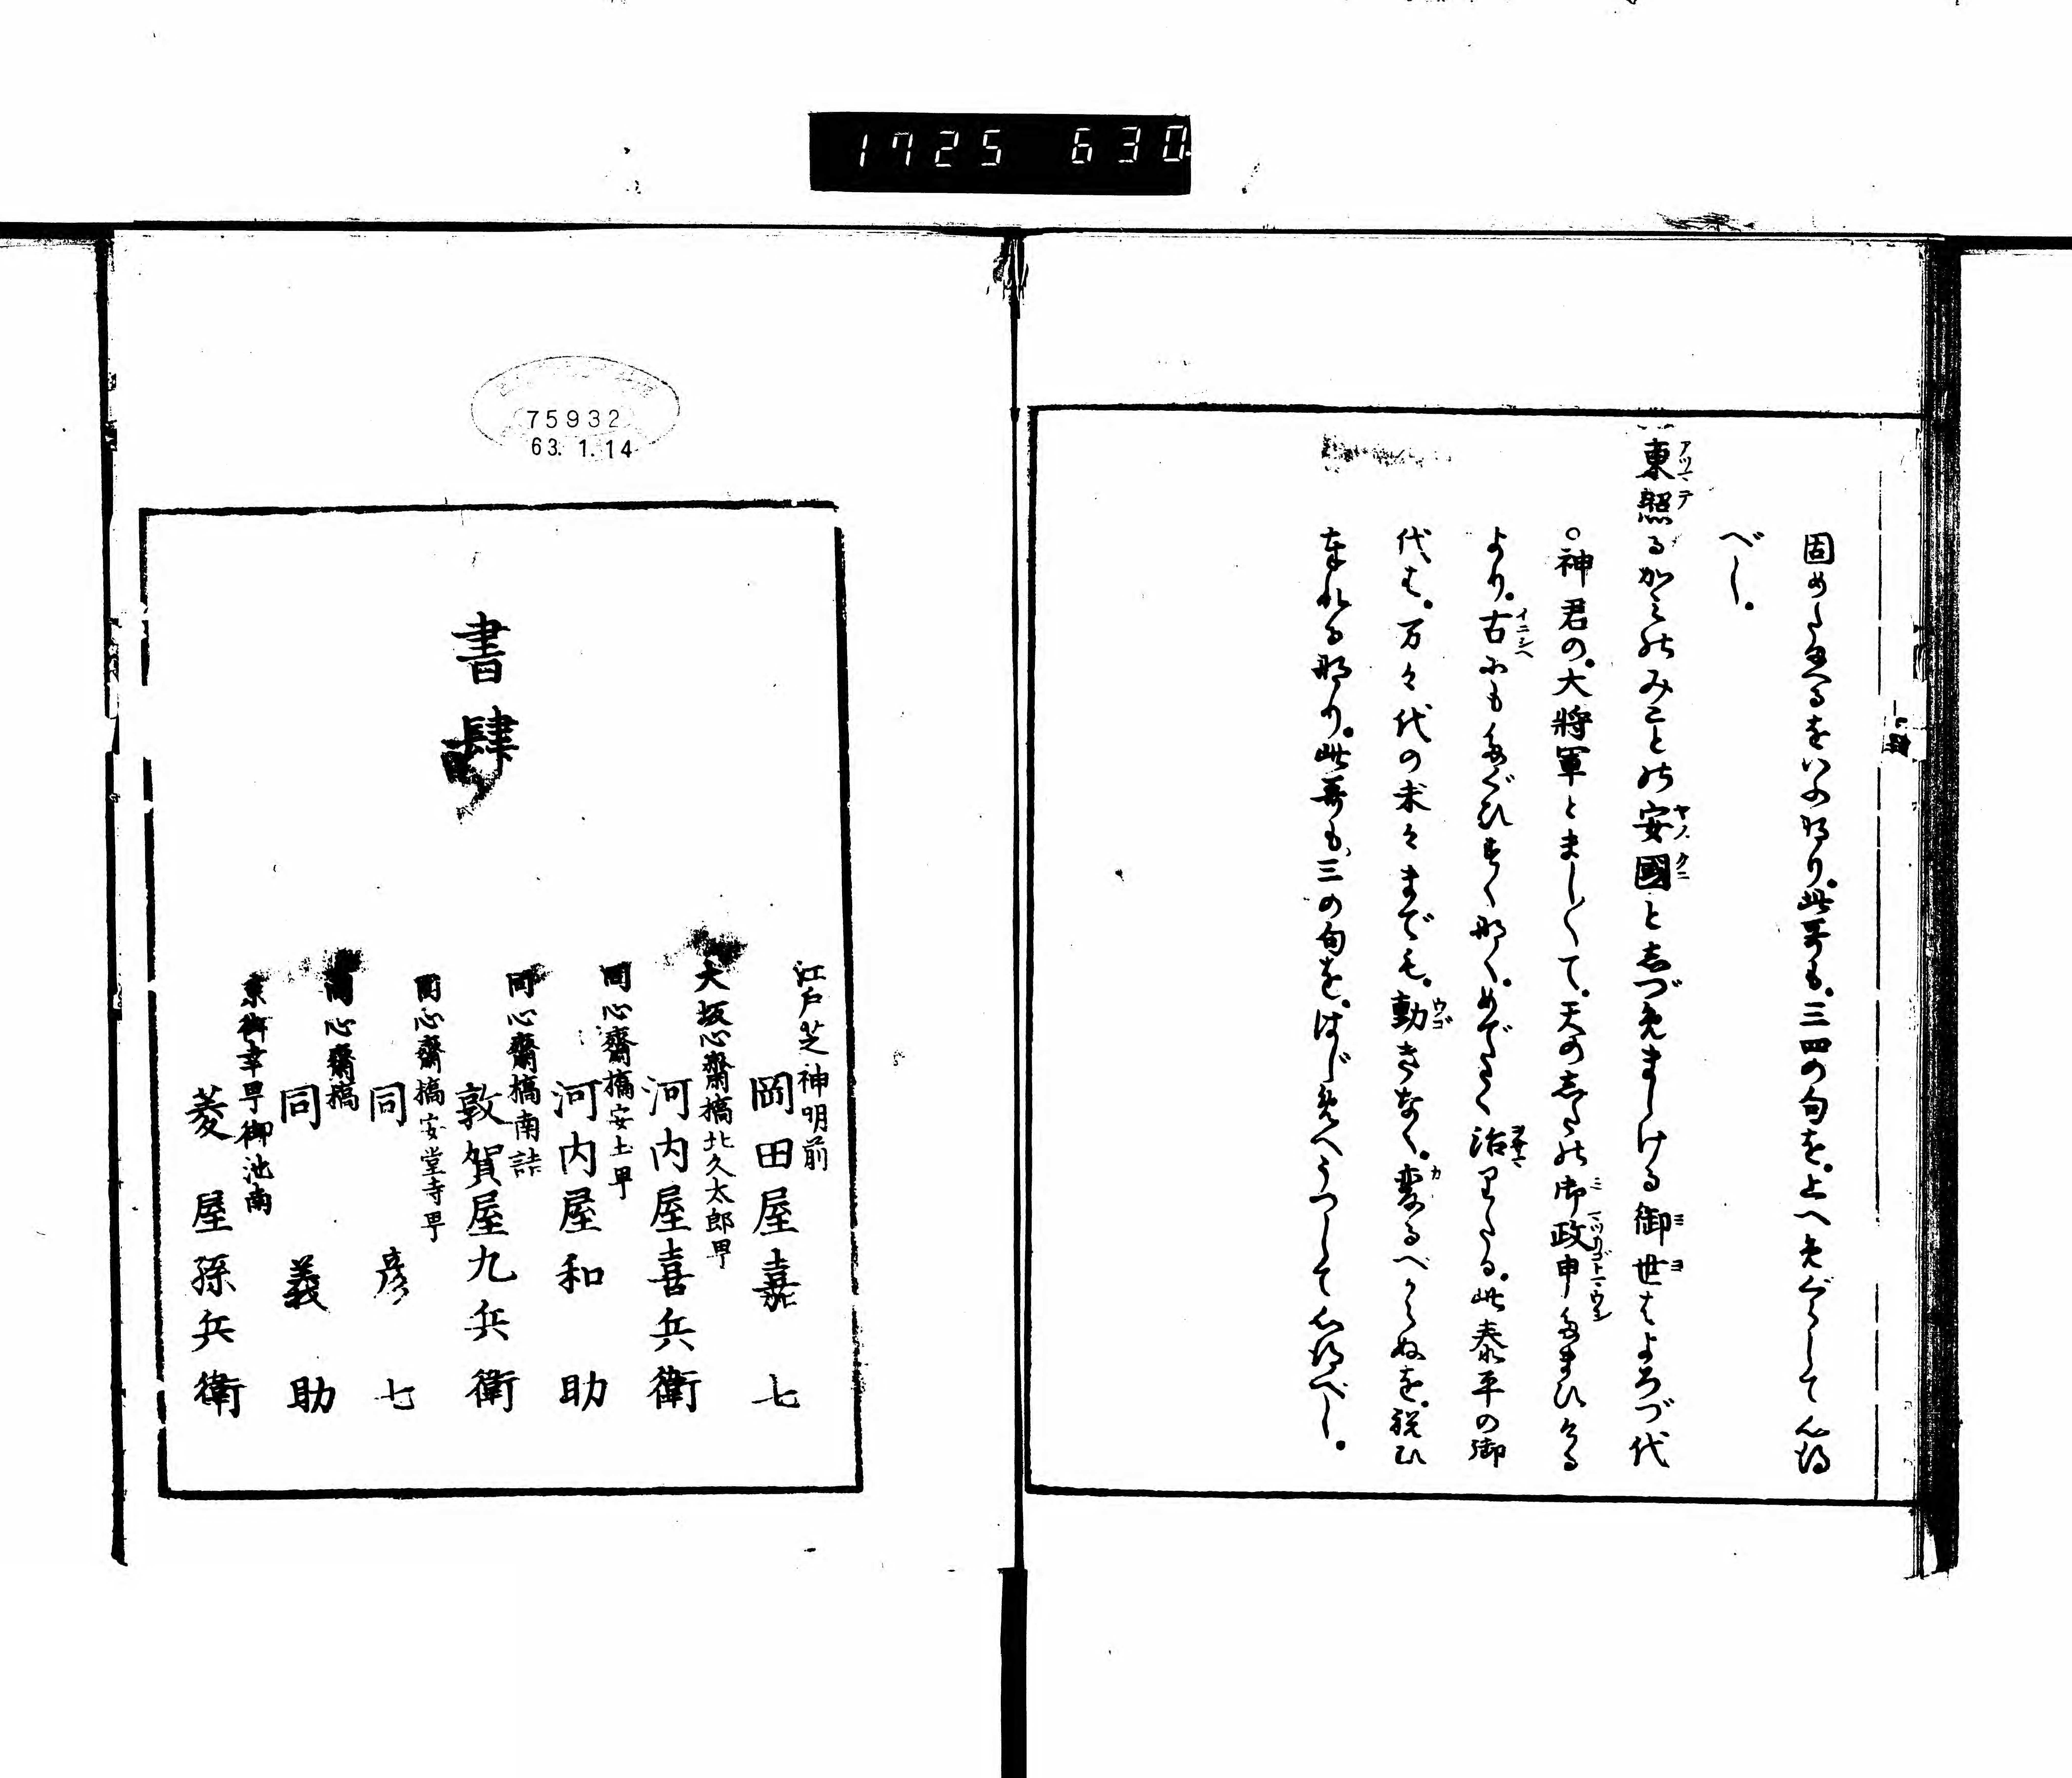 1725 630
固めたまへるをいふなり。此哥も。三四の句を。上へめぐらして心得
べし。
東照るかみのみことの安國としづめましける御世はよろづ代
○神君の。大將軍とましまして。天の志たの御政申たまひける
より。古にもたぐひすくなく。めでたく治りたる。此泰平の御
代は。万々代の末々までも。動きなく。変るべからぬを。祝ひ
奉れる那り。此哥も、三の句を。はじめへうつして心得べし。
75932
63.1.14
書肆
江戸芝神明前
岡田屋嘉七
大坂心齋橋北久太郎町
河内屋喜兵衛
同心齋橋安土町
河内屋和助
同心齋橋南詰
敦賀屋九兵衛
同心齋橋安堂寺町
同彦七
同心齋橋
同義助
京御幸町御池南
菱屋孫兵衛